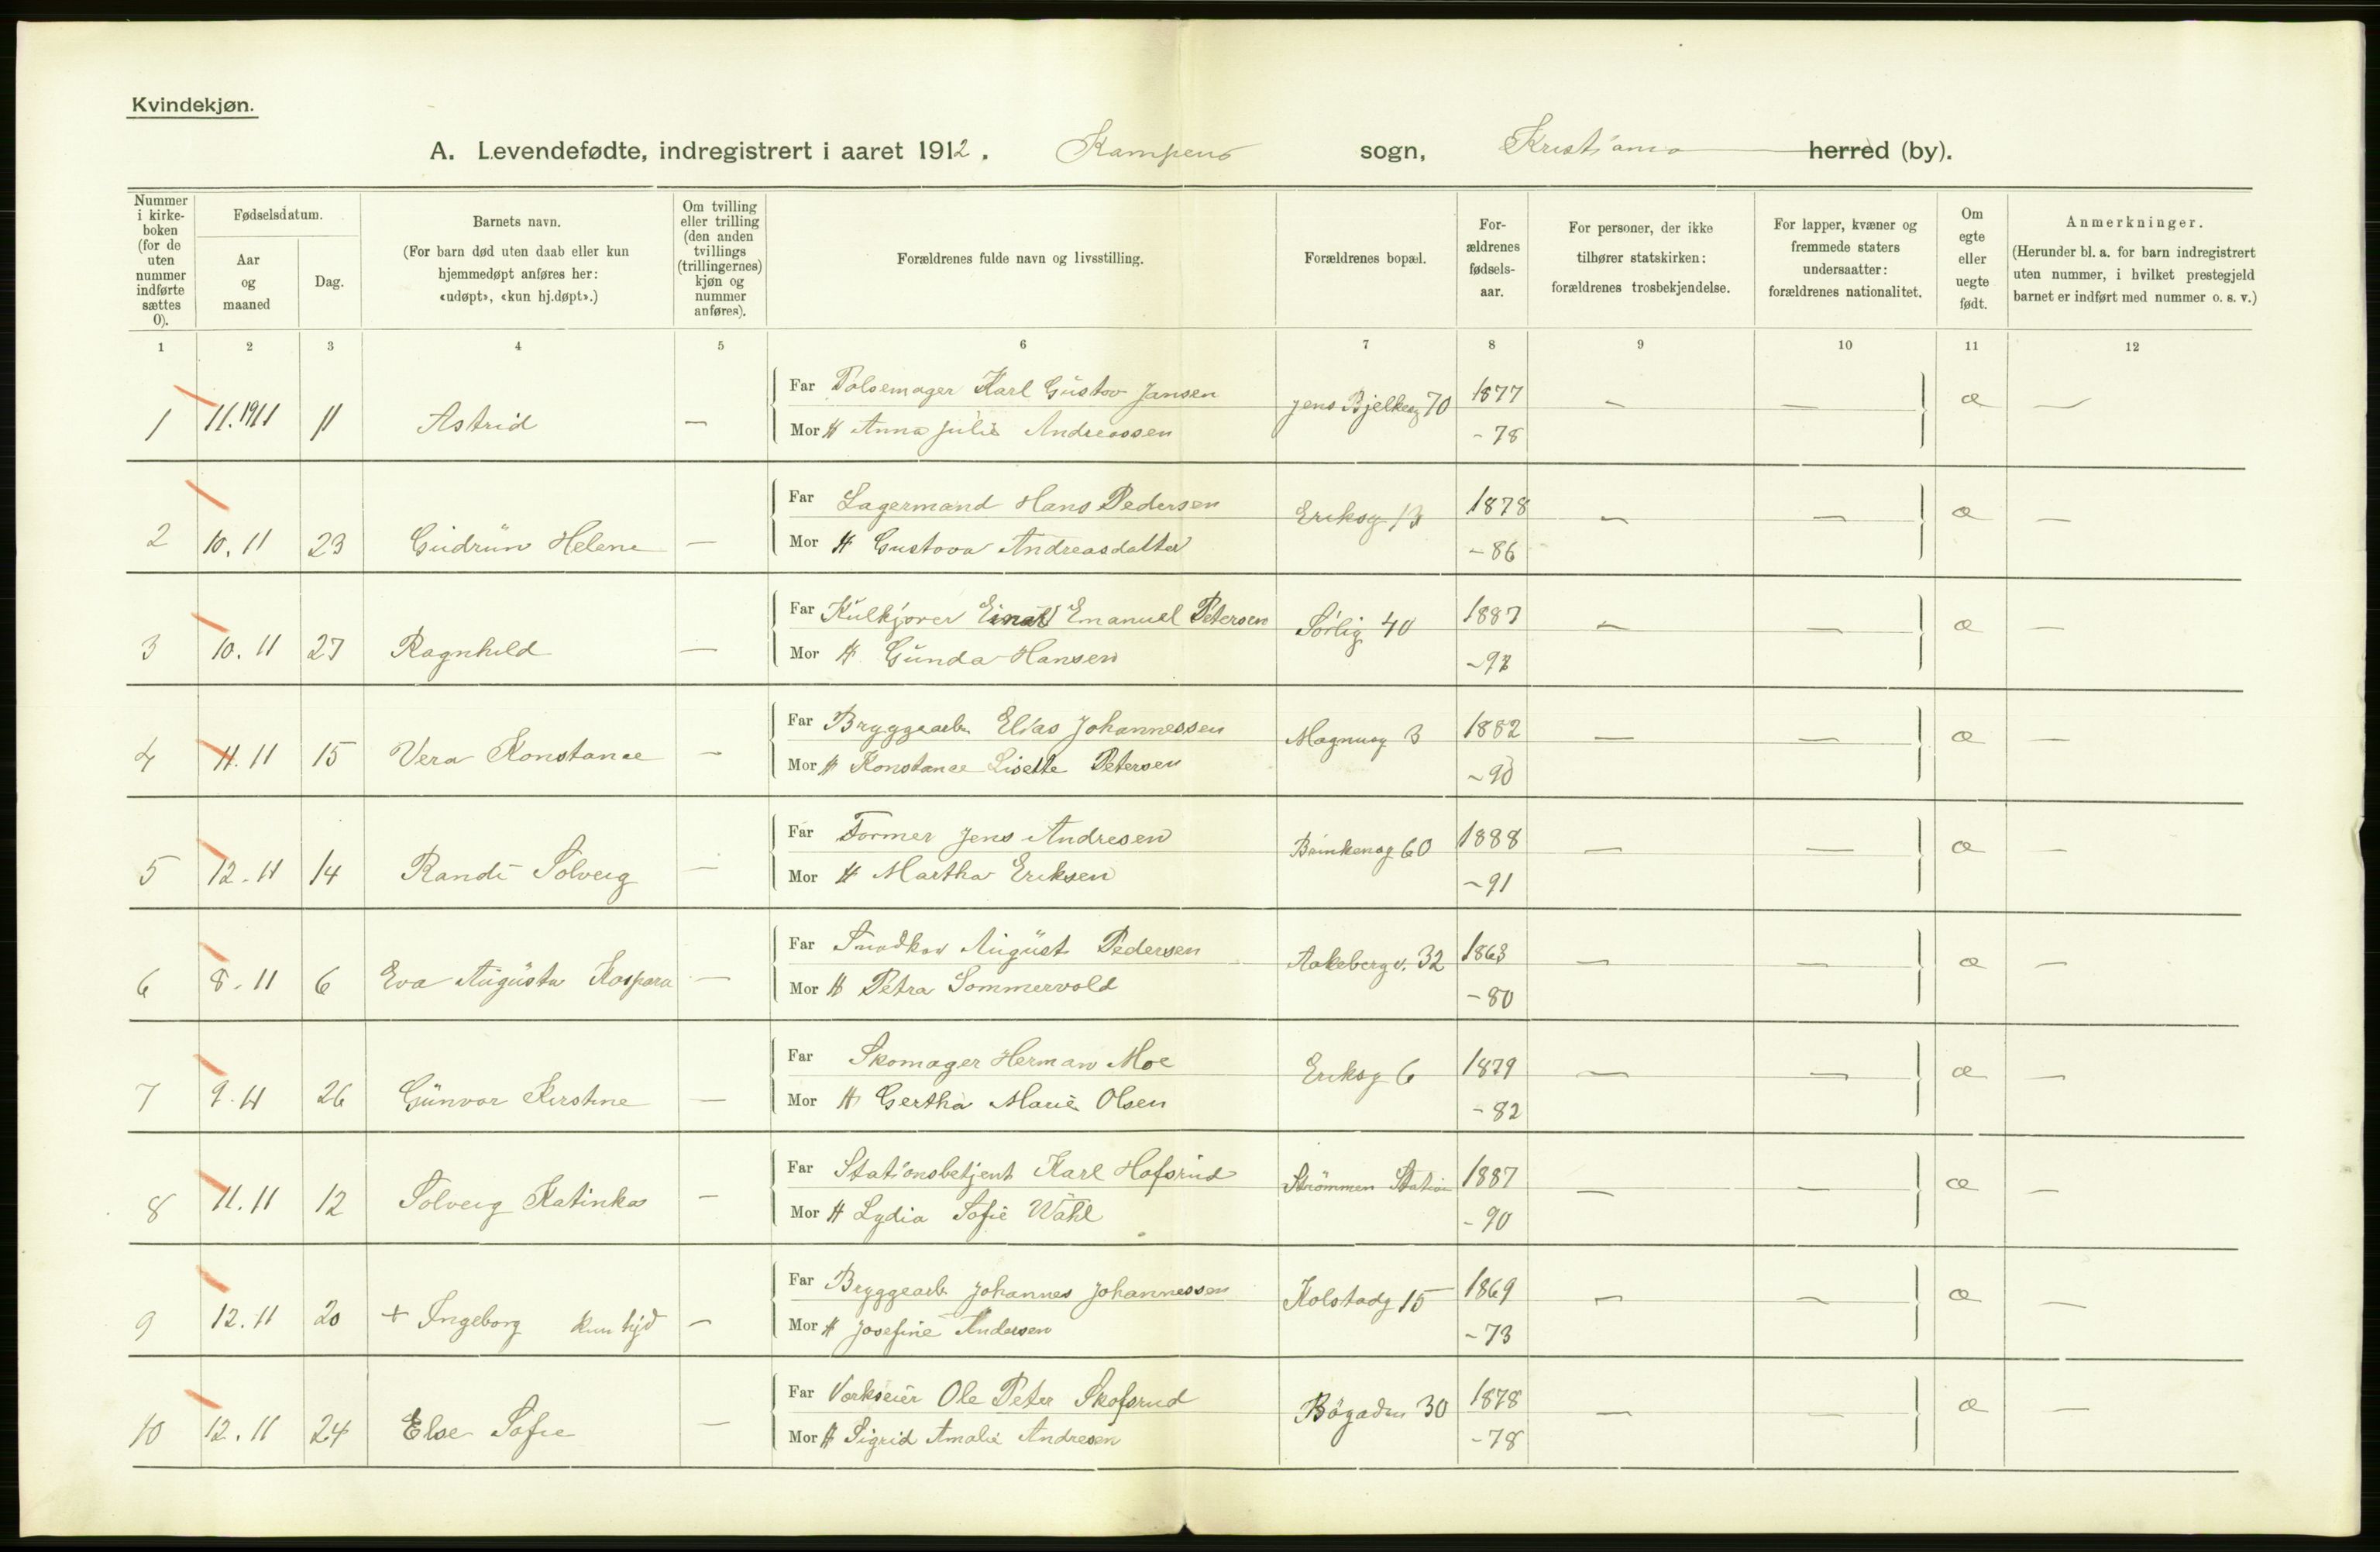 Kvindekjøn.
A. Levendefødte, indregistrert i aaret 1912. Kampens sogn, Kristiania herred (by).
Nummer i kirke-boken (for de uten nummer indførte sættes 0).
Fødselsdatum.
Aar og maaned
Dag.
Barnets navn.
(For barn død uten daab eller kun hjemmedøpt anføres her: «udøpt», «kun hj.døpt».)
Om tvilling eller trilling (den anden tvillings (trillingernes) kjøn og nummer anføres).
Forældrenes fulde navn og livsstilling.
Forældrenes bopæl.
For-ældrenes fødsels-aar.
For personer, der ikke tilhører statskirken: forældrenes trosbekjendelse.
For lapper, kvæner og fremmede staters undersaatter: forældrenes nationalitet.
Om egte eller uegte født.
Anmerkninger.
(Herunder bl. a. for barn indregistrert uten nummer, i hvilket prestegjeld barnet er indført med nummer o. s. v.)
1 2 3 4 5 6 7 8 9 10 11 12
Far Pølsemager Karl Gustav Jansen Jens Bjelkesg 70 1877
1 11.1911 11 Astrid — — — æ —
Mor H Anna Julie Andreassen - 78
Far Lagermand Hans Pedersen Eriksg 13 1878
2 10.11 23 Gudrun Helene — — — æ —
Mor H Gustava Andreasdatter - 86
Far Kulkjører Einar Emanuel Petersen Sørlig 40 1887
3 10.11 27 Ragnhild — — — æ —
Mor H Gunda Hansen
Far Bryggearb Elias Johannessen Magnusg 3 1882
4 11.11 15 Vera Konstance — — — æ —
Mor H Konstance Lisette Petersen - 90
Far Former Jens Andresen Brinkensg 60 1888
5 12.11 14 Randi Solveig — — — æ —
Mor H Martha Eriksen - 91
Far August Pedersen Aakebergv. 32 1863
6 8.11 6 Eva Augusta Kaspara — — — æ —
Mor H Petra Sommervold - 80
Far Skomager Herman Moe Eriksg 6 1879
7 9.11 26 Gunvor Kirstine — — — æ —
Mor H Gertha Marie Olsen - 82
Far Stationsbetjent Karl Hofsrud Strømmen Station 1887
8 11.11 12 Solveig Katinka — — — æ —
Mor H Lydia Sofie Wahl - 90
Far Bryggearb Johannes Johannessen Kolstadg 15 1869
9 12.11 20 + Ingeborg kun hjd — — — æ —
Mor H Josefine Andersen - 73
Far Verkseier Ole Peter Skofsrud Bøgaden 30 1878
10 12.11 24 Else Sofie — — — æ —
Mor H Sigrid Amalie Andresen - 78